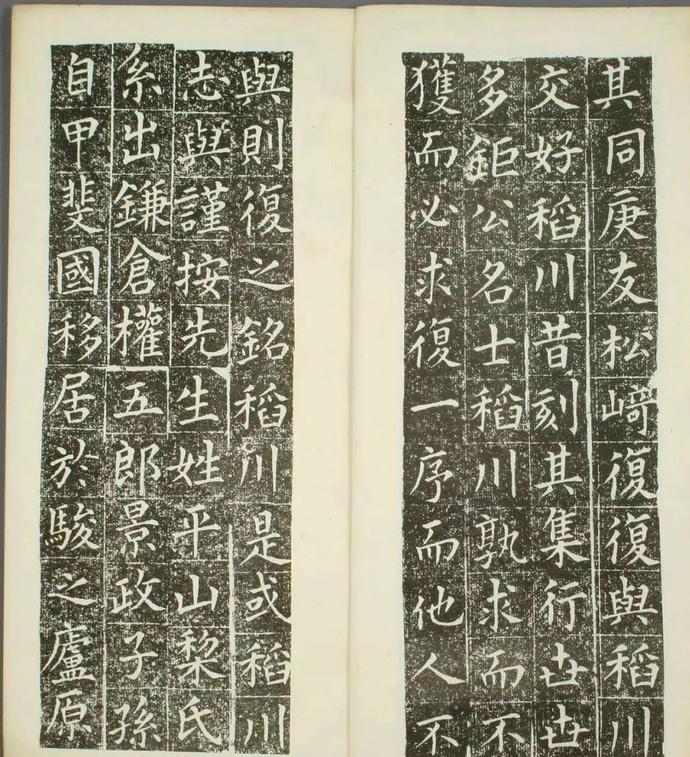 其同庚友松﨑復復與稻川
交好稻川昔刻其集行世世
多鉅公名士稻川孰求而不
獲而必求復一序而他人不
與則復之銘稻川是或稻川
志與謹按先生姓平山棃氏
系出鎌倉權五郎景政子孫
自甲斐國移居於駿之廬原